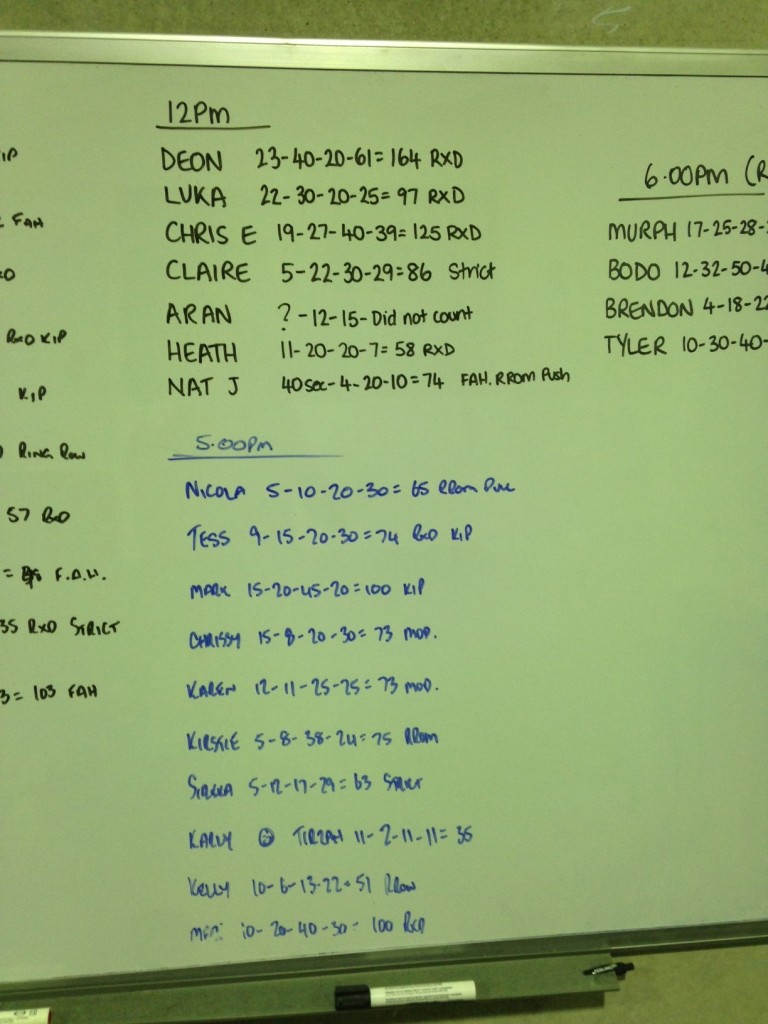 IP
FAH
RXD KIP
KIP
RING ROW
57 RXD
= F.A.H.
35 RXD STRICT
3= 103 FAH
12PM
DEON 23-40-20-61= 164 RXD
LUKA 22-30-20-25= 97 RXD
CHRIS E 19-27-40-39= 125 RXD
CLAIRE 5-22-30-29=86 Strict
ARAN ? -12-15- Did not count
HEATH 11-20-20-7= 58 RXD
NAT J 40sec-4-20-10=74 FAH. RROM Push
5:00PM
NICOLA 5-10-20-30= 65 RROM
TESS 9-15-20-30=74 RXD KIP
MARK 15-20-45-20=100 KIP
CHRISSY 15-8-20-30= 73 MOD.
KAREN 12-11-25-25= 73 MOD.
KIRSSIE 5-8-38-24= 75 RROM
5-12-17-29= 63 STRICT
TIRZAH 11-2-11-11= 35
KELLY 10-6-13-22=51 RROW
10-20-40-30= 100 RXD
6:00PM (R
MURPH 17-25-28-
BODO 12-32-50-4
BRENDON 4-18-22
TYLER 10-30-40-